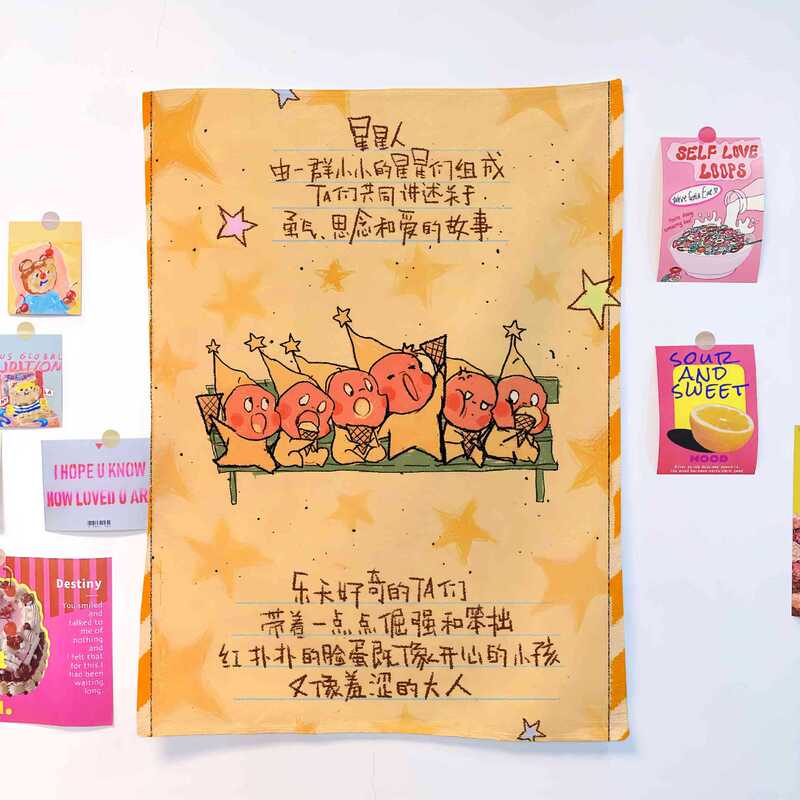 星星人
由一群小小的星星们组成
TA们共同讲述关于
勇气、思念和爱的故事
乐天好奇的TA们
带着一点点倔强和笨拙
红扑扑的脸蛋既像开心的小孩
又像羞涩的大人
US GLOBAL
I HOPE U KNOW
HOW LOVED U AR
Destiny
You smiled
and
talked to
me of
nothing
and I
felt that
for this I
had been
waiting
long.
SELF LOVE
LOOPS
SOUR
AND
SWEET
MOOD